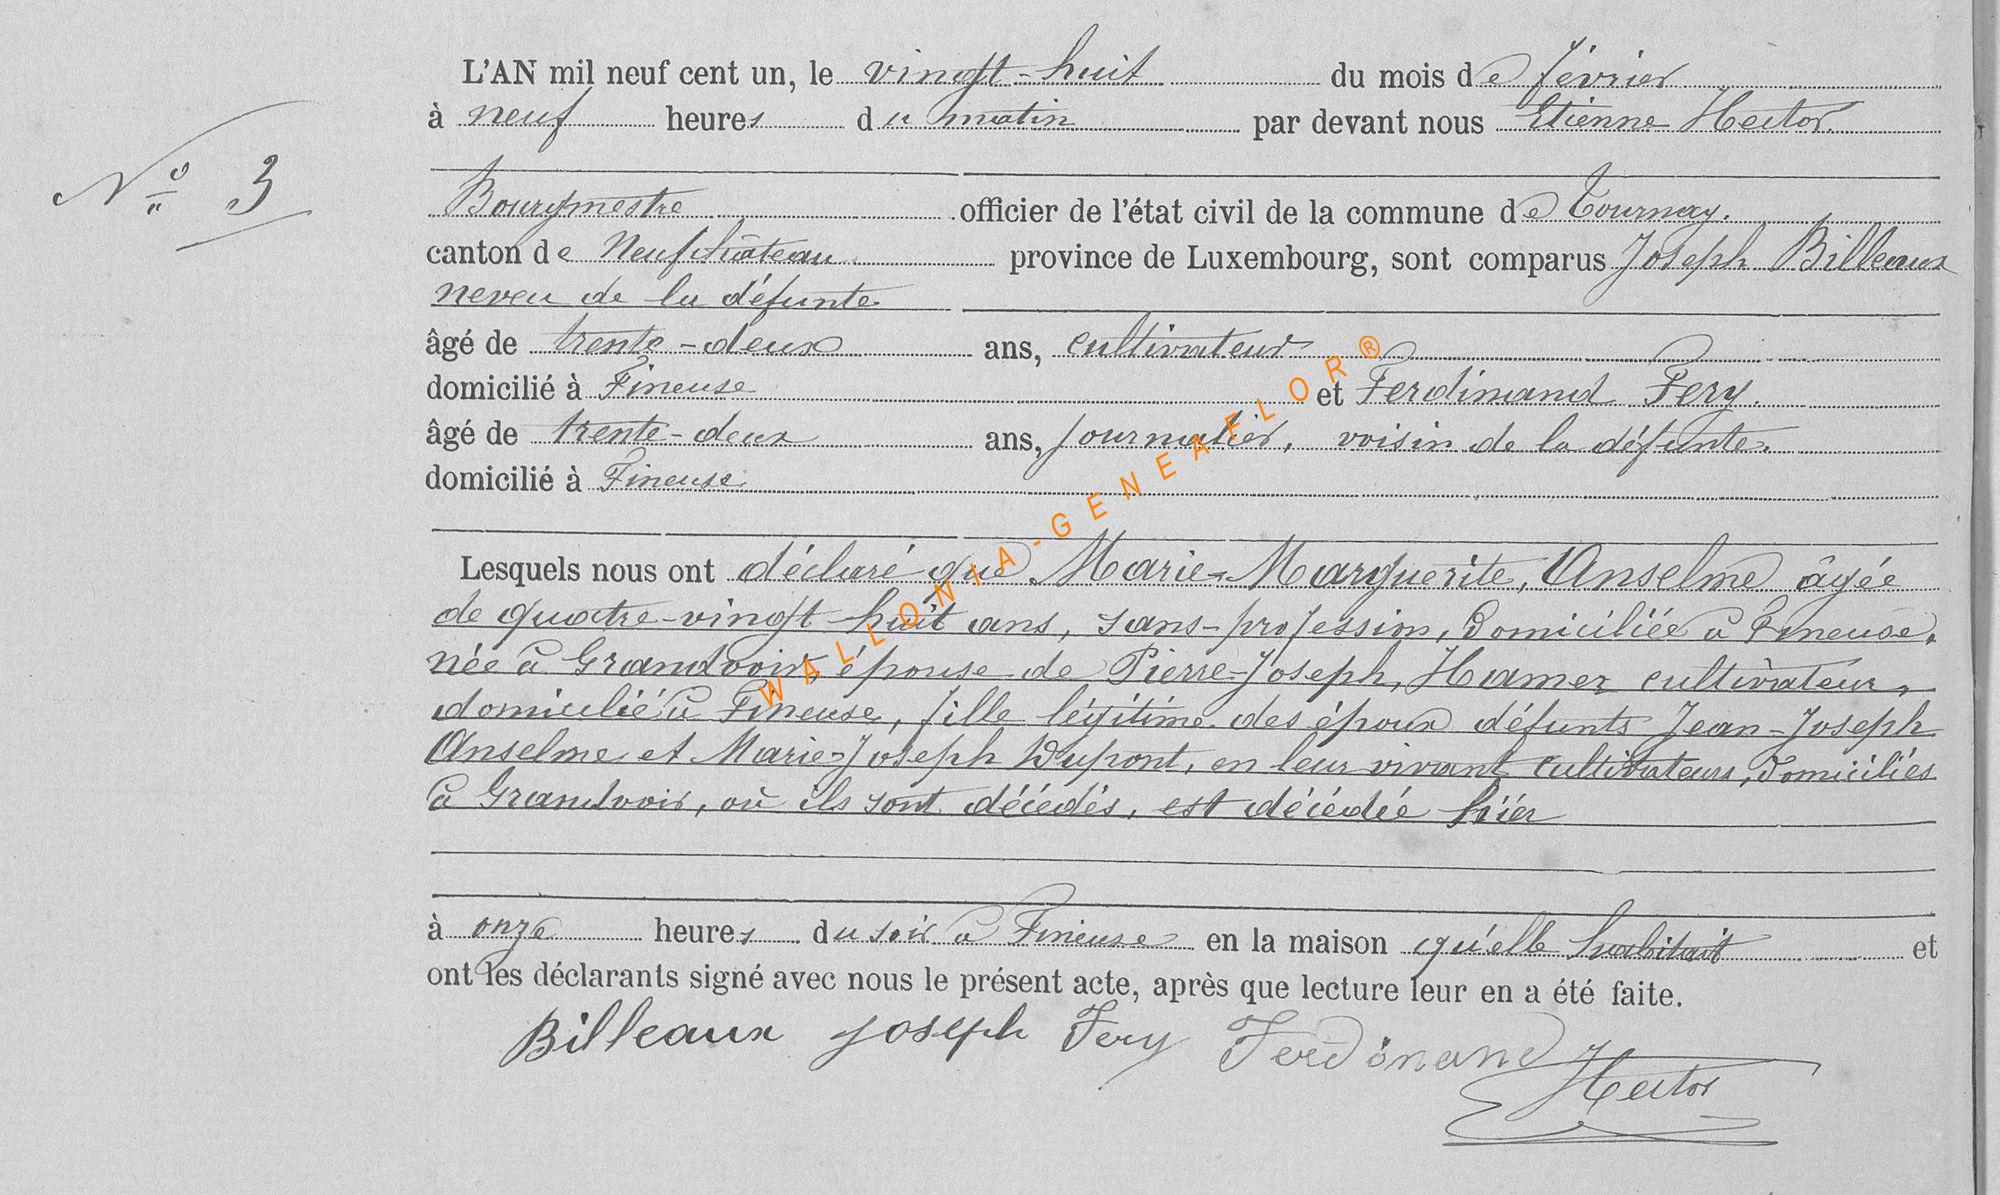 L'AN mil neuf cent un, le vingt-huit du mois de février
à neuf heures du matin par devant nous Etienne Hector.
N° 3
Bourgmestre officier de l'état civil de la commune de Tournay.
canton de Neufchâteau province de Luxembourg, sont comparus Joseph Billeaux
neveu de la défunte.
âgé de trente-deux ans, cultivateur
domicilié à Fineuse et Ferdinand Fery.
âgé de trente-deux ans, journalier, voisin de la défunte.
domicilié à Fineuse.
Lesquels nous ont déclaré que Marie-Marguerite, Anselme âgée
de quatre-vingt huit ans, sans-profession, domiciliée à Fineuse,
née à Grandvoir, épouse de Pierre-Joseph, Hamer cultivateur,
domicilié à Fineuse, fille légitime des époux défunts Jean-Joseph
Anselme et Marie-Joseph Dupont, en leur vivant cultivateurs, domiciliés
à Grandvoir, où ils sont décédés, est décédée hier
à onze heures du soir à Fineuse en la maison qu'elle habitait et
ont les déclarants signé avec nous le présent acte, après que lecture leur en a été faite.
Billeaux Joseph Fery Ferdinand
Hector
WALLONIA-GENEAFLOR®